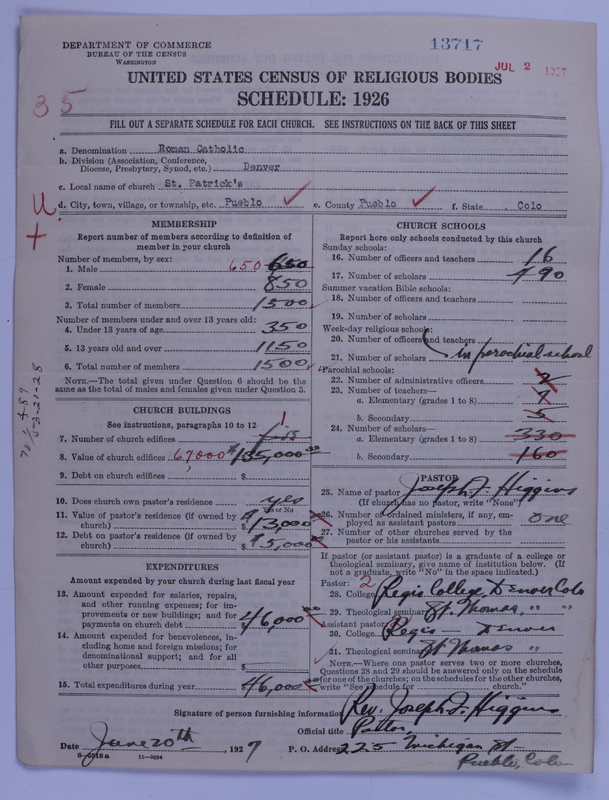 DEPARTMENT OF COMMERCE
BUREAU OF THE CENSUS
WASHINGTON
13717
JUL 2 1927
UNITED STATES CENSUS OF RELIGIOUS BODIES
SCHEDULE: 1926
35
FILL OUT A SEPARATE SCHEDULE FOR EACH CHURCH. SEE INSTRUCTIONS ON THE BACK OF THIS SHEET
a. Denomination Roman Catholic
b. Division (Association, Conference,
Diocese, Presbytery, Synod, etc.) Denver
c. Local name of church St. Patrick's
d. City, town, village, or township, etc. Pueblo e. County Pueblo f. State Colo
U
MEMBERSHIP
Report number of members according to definition of
member in your church
Number of members, by sex:
1. Male 650 650
2. Female 850
3. Total number of members 1500
Number of members under and over 13 years old:
4. Under 13 years of age 350
5. 13 years old and over 1150
6. Total number of members 1500
NOTE.—The total given under Question 6 should be the
same as the total of males and females given under Question 3.
CHURCH BUILDINGS
See instructions, paragraphs 10 to 12
7. Number of church edifices 1
8. Value of church edifices 67,000 $135,000
9. Debt on church edifices $
10. Does church own pastor's residence yes
Yes or No
11. Value of pastor's residence (if owned by
church) $13,000
12. Debt on pastor's residence (if owned by
church) $5,000
EXPENDITURES
Amount expended by your church during last fiscal year
13. Amount expended for salaries, repairs,
and other running expenses; for im-
provements or new buildings; and for
payments on church debt $46,000
14. Amount expended for benevolences, in-
cluding home and foreign missions; for
denominational support; and for all
other purposes $
15. Total expenditures during year $46,000
CHURCH SCHOOLS
Report here only schools conducted by this church
Sunday schools:
16. Number of officers and teachers 16
17. Number of scholars 490
Summer vacation Bible schools:
18. Number of officers and teachers
19. Number of scholars
Week-day religious schools:
20. Number of officers and teachers
21. Number of scholars in parochial school
Parochial schools:
22. Number of administrative officers 2
23. Number of teachers—
a. Elementary (grades 1 to 8) 7
b. Secondary 5
24. Number of scholars—
a. Elementary (grades 1 to 8) 330
b. Secondary 160
PASTOR
25. Name of pastor Joseph F. Higgins
(If church has no pastor, write "None")
26. Number of ordained ministers, if any, em-
ployed as assistant pastors one
27. Number of other churches served by the
pastor or his assistants
If pastor (or assistant pastor) is a graduate of a college or
theological seminary, give name of institution below. (If
not a graduate, write "No" in the space indicated.)
Pastor: 2
28. College Regis College, Denver Colo
29. Theological seminary St. Thomas, " "
Assistant pastor:
30. College Regis — Denver
31. Theological seminary St Thomas "
NOTE.—Where one pastor serves two or more churches,
Questions 28 and 29 should be answered only on the schedule
for one of the churches; on the schedules for the other churches,
write "See schedule for church."
Signature of person furnishing information Rev. Joseph F. Higgins
Official title Pastor
Date June 20th, 1927 P. O. Address 225 Michigan St
8-5518a 11-9054 Pueblo, Colo